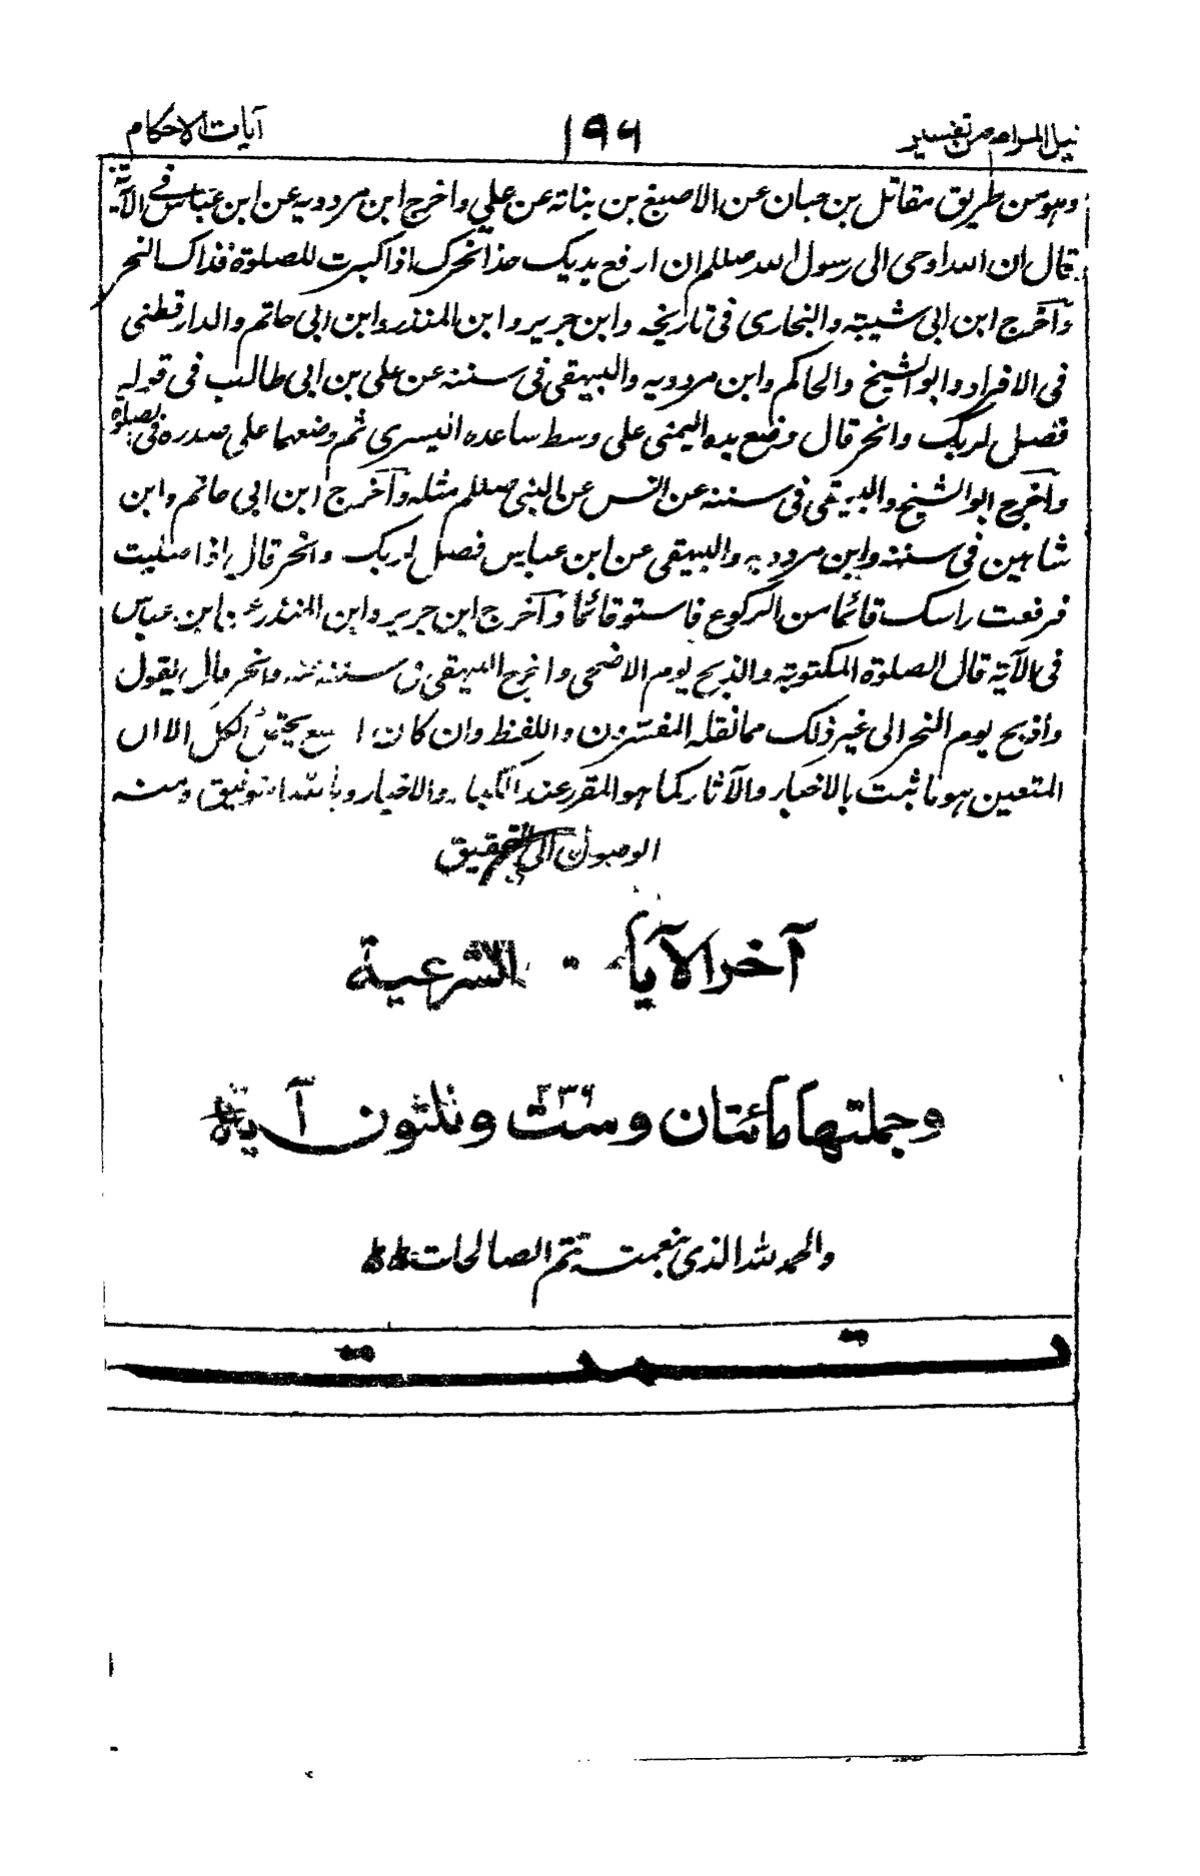 نيل المرام من تفسير ١٩٦ آيات الاحكام
وهو من طريق مقاتل بن حبان عن الاصبغ بن بناتة عن علي واخرج ابن مردويه عن ابن عباس في الآية
قال ان الله اوحى الى رسول الله صللم ان ارفع يديك حذا نحرك اذا كبرت للصلوة فذاك النحر
وآخرج ابن ابى شيبة والبخارى فى تاريخه وابن جرير وابن المنذر وابن ابى حاتم والدارقطنى
فى الافراد وابو الشيخ والحاكم وابن مردويه والبيهقى فى سننه عن على بن ابى طالب فى قوله
فصل لربك وانحر قال وضع يده اليمنى على وسط ساعده اليسرى ثم وضعهما على صدره فى الصلوة
وآخرج ابو الشيخ والبيهقى فى سننه عن انس عن النبى صللم مثله وآخرج ابن ابى حاتم وابن
شاهين فى سننه وابن مردويه والبيهقى عن ابن عباس فصل لربك وانحر قال اذا صليت
فرفعت راسك قائما من الركوع فاستو قائما وآخرج ابن جرير وابن المنذر عن ابن عباس
فى الآية قال الصلوة المكتوبة والذبح يوم الاضحى واخرج البيهقى فى سننه عنه وانحر قال يقول
واذبح يوم النحر الى غير ذلك مما نقله المفسرون واللفظ وان كان يحتمل الكل الا ان
المتعين هو ما ثبت بالاخبار والآثار كما هو المقرر عند والاخيار وبالله التوفيق ومنه
الوصول الى التحقيق
آخر الآيات الشرعية
٢٣٦
وجملتها مائتان وست وثلثون آية
والحمد لله الذى بنعمته تتم الصالحات
تمت